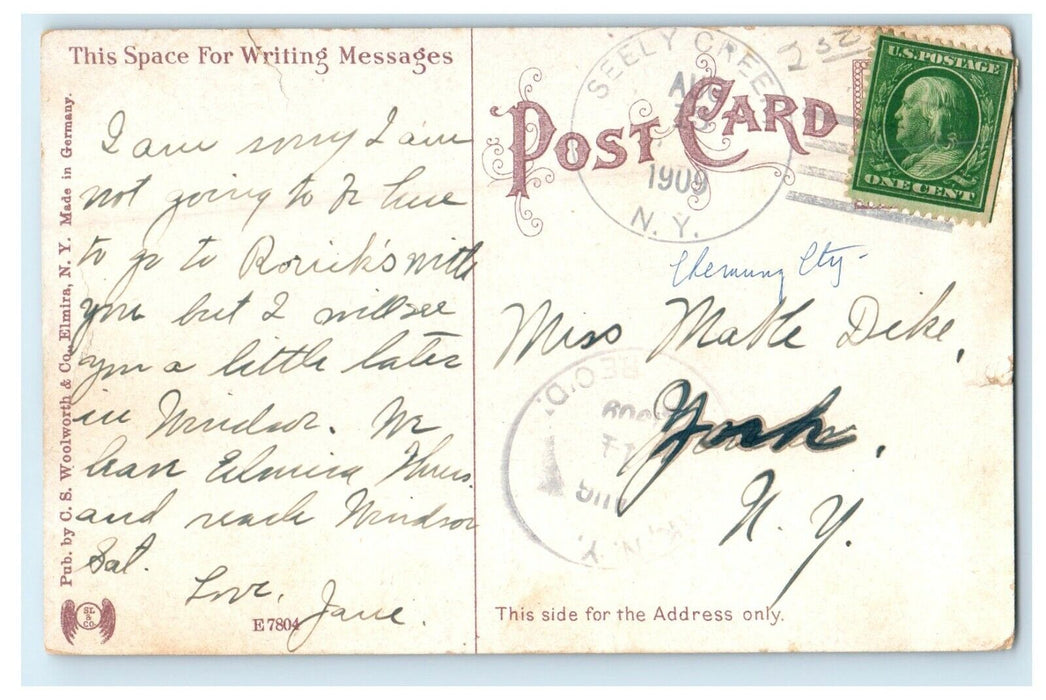 This Space For Writing Messages
I am sorry I am
not going to be here
to go to Rorick's with
you but I will see
you a little later
in Windsor. We
leave Elmira Thurs.
and reach Windsor
Sat.
Love,
Jane.
Pub. by C. S. Woolworth & Co., Elmira, N. Y. Made in Germany.
SL & CO.
E 7804
POST CARD
SEELY CREEK
AUG
1909
N. Y.
25¢
U.S. POSTAGE
ONE CENT
Chemung Cty-
Miss Mable Dike,
York,
N. Y.
REC'D.
1909
AUG
N. Y.
This side for the Address only.